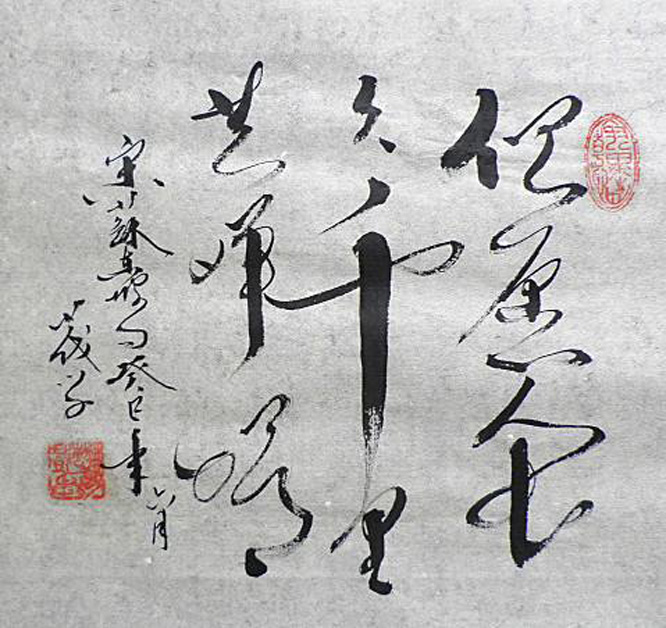 但愿人长
久千里
共婵娟
宋苏东坡句癸巳年六月